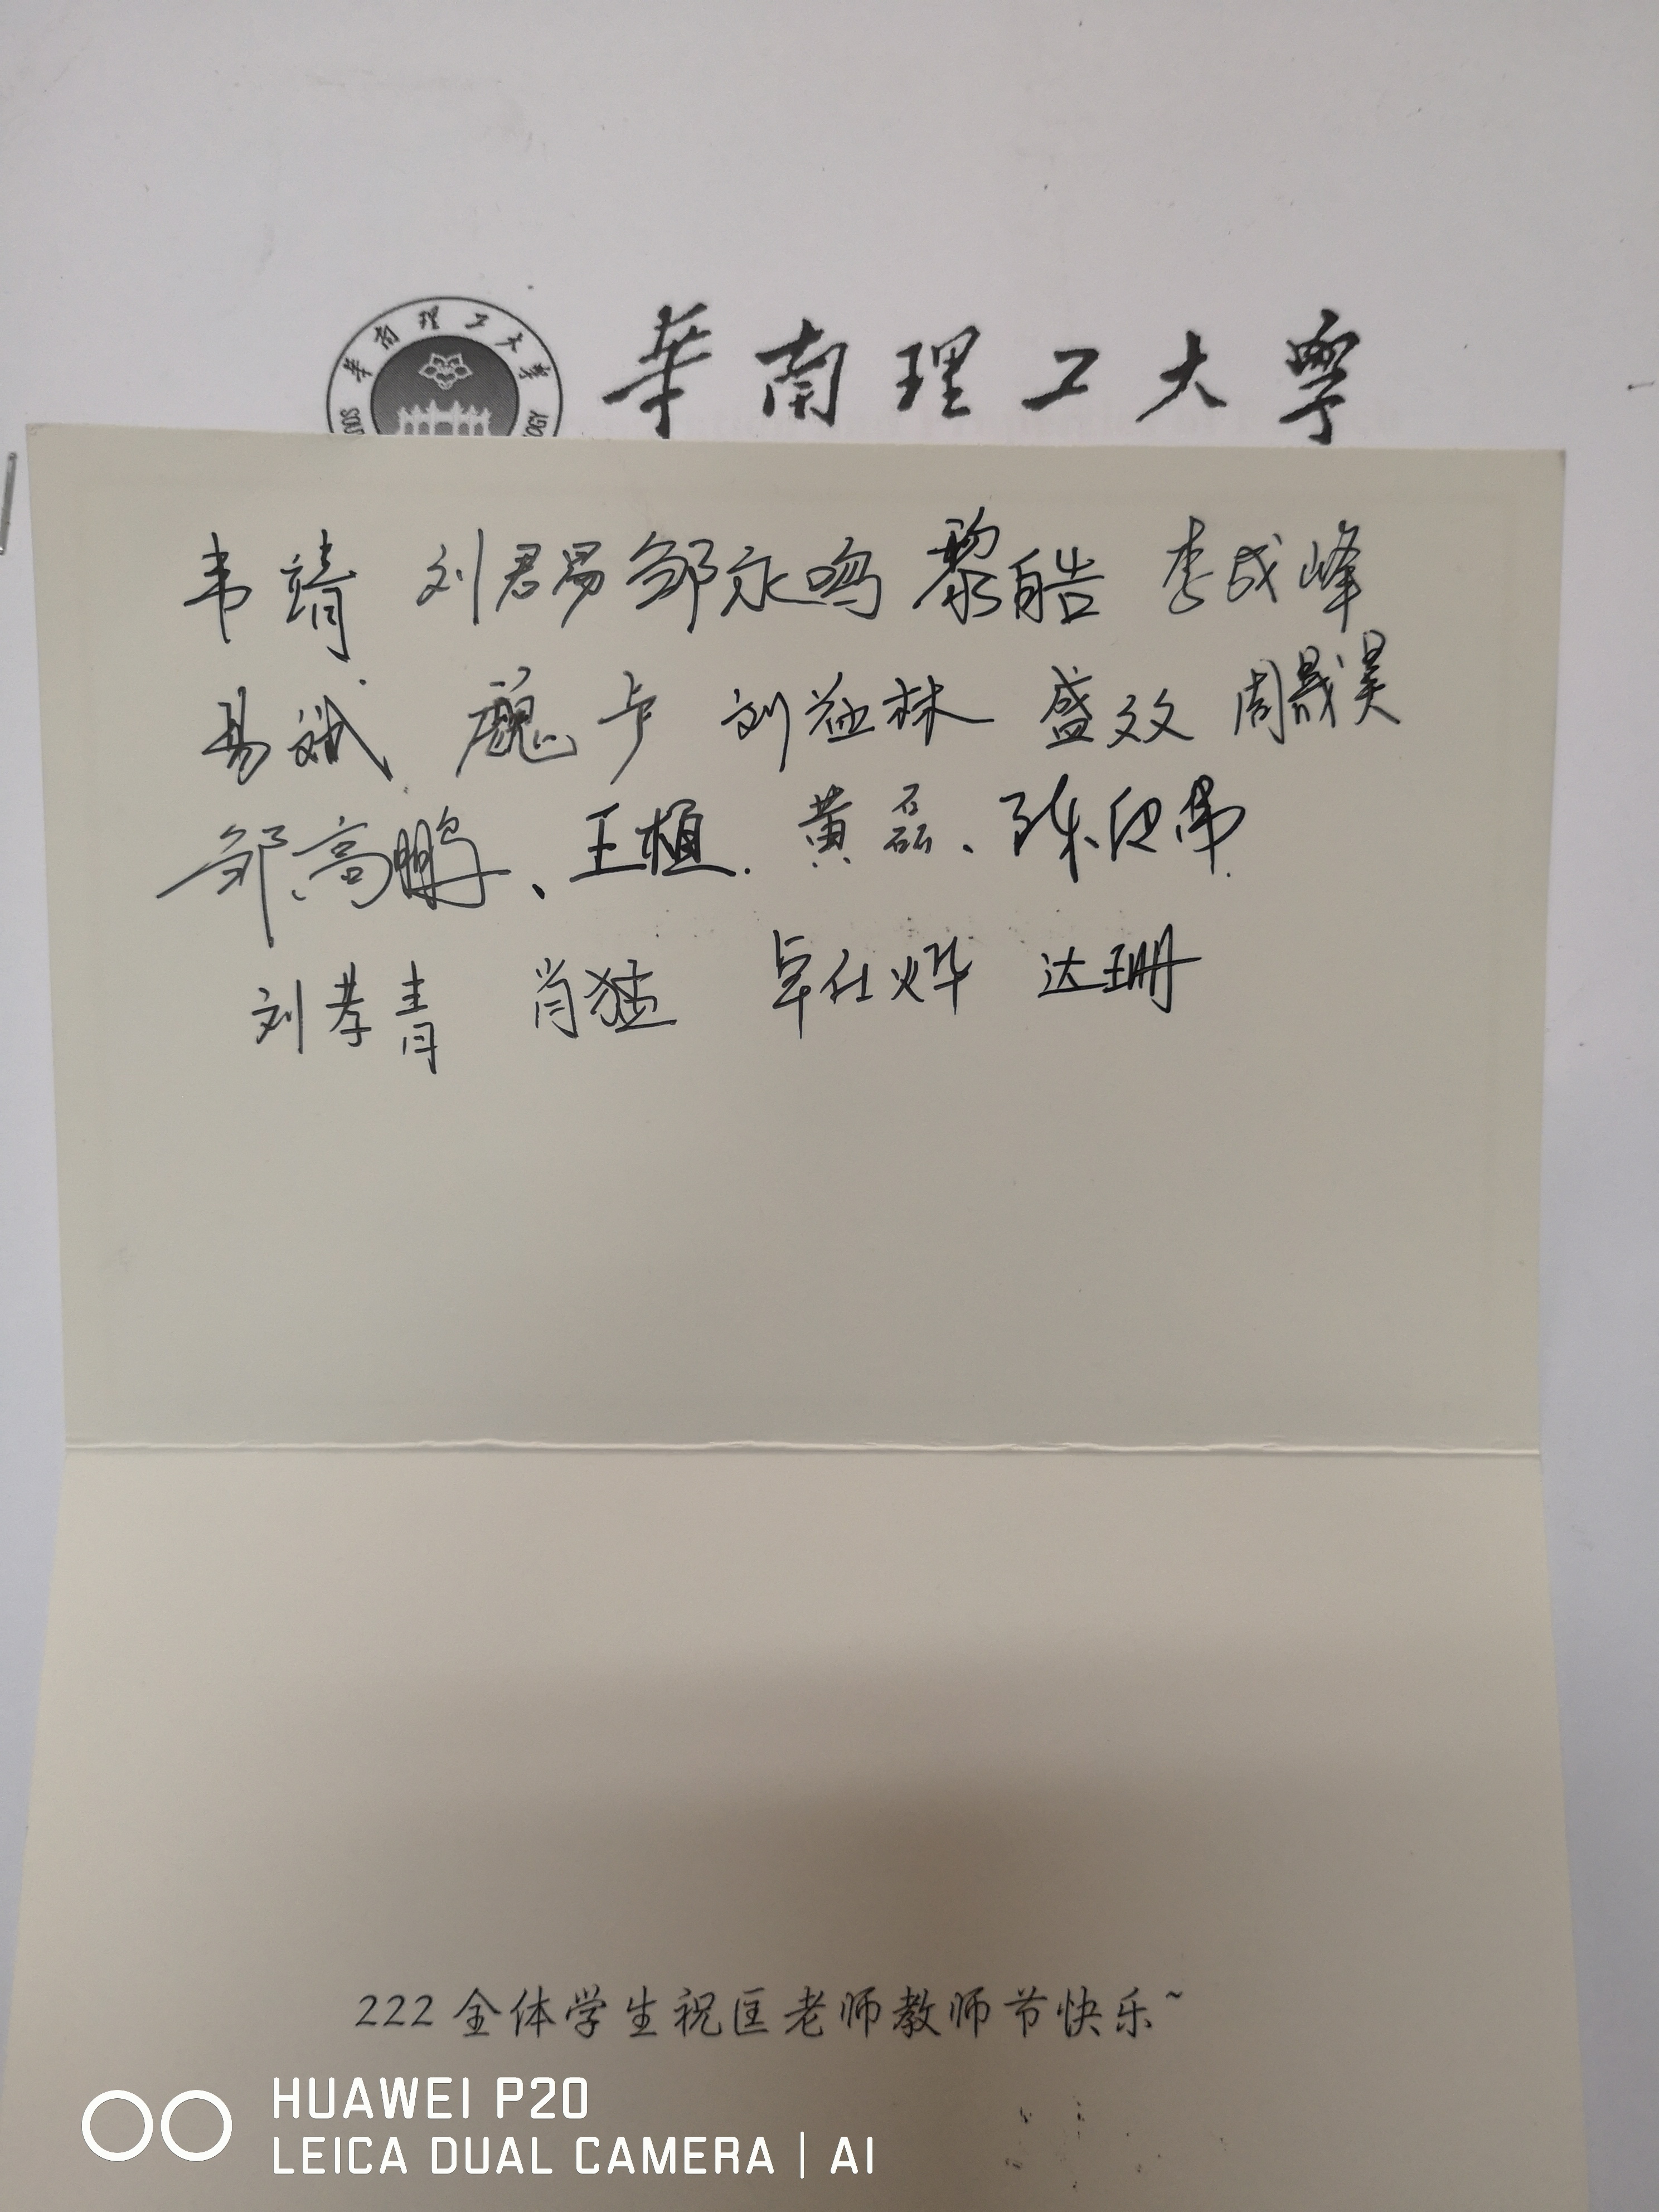 華南理工大學
華南理工大學
韦靖 刘君易 邹永鸣 黎皓 李成峰
易斌 卢 刘益林 盛效 周晟昊
邹高鹏、王植. 黄磊、陈伟.
刘孝青 肖猛 卓仕烨 达珊
222全体学生祝匡老师教师节快乐~
HUAWEI P20
LEICA DUAL CAMERA | AI